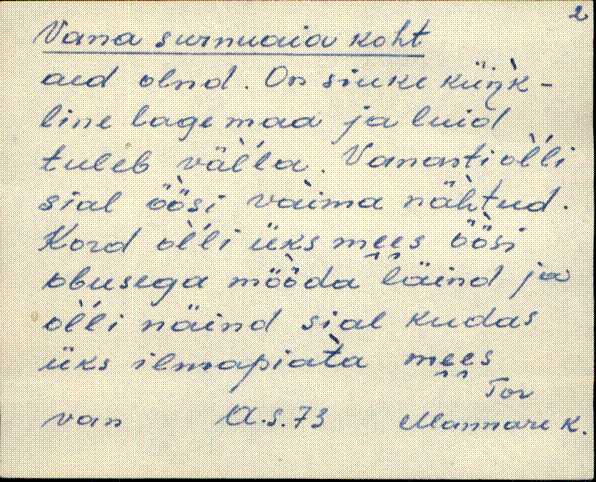 2
Vana surnuaia koht
aed olnd. On siuke küηk-
line lagemaa ja luid
tuleb väl̀la. Vanasti òl̀li
sial öösi vàima näh̀tud.
Kord òl̀li üks mees öösi
obusega mööda läind ja
òl̀li näind sial kudas
üks ilmapiàta mees
Tor
van A.S.73 Mannare k.